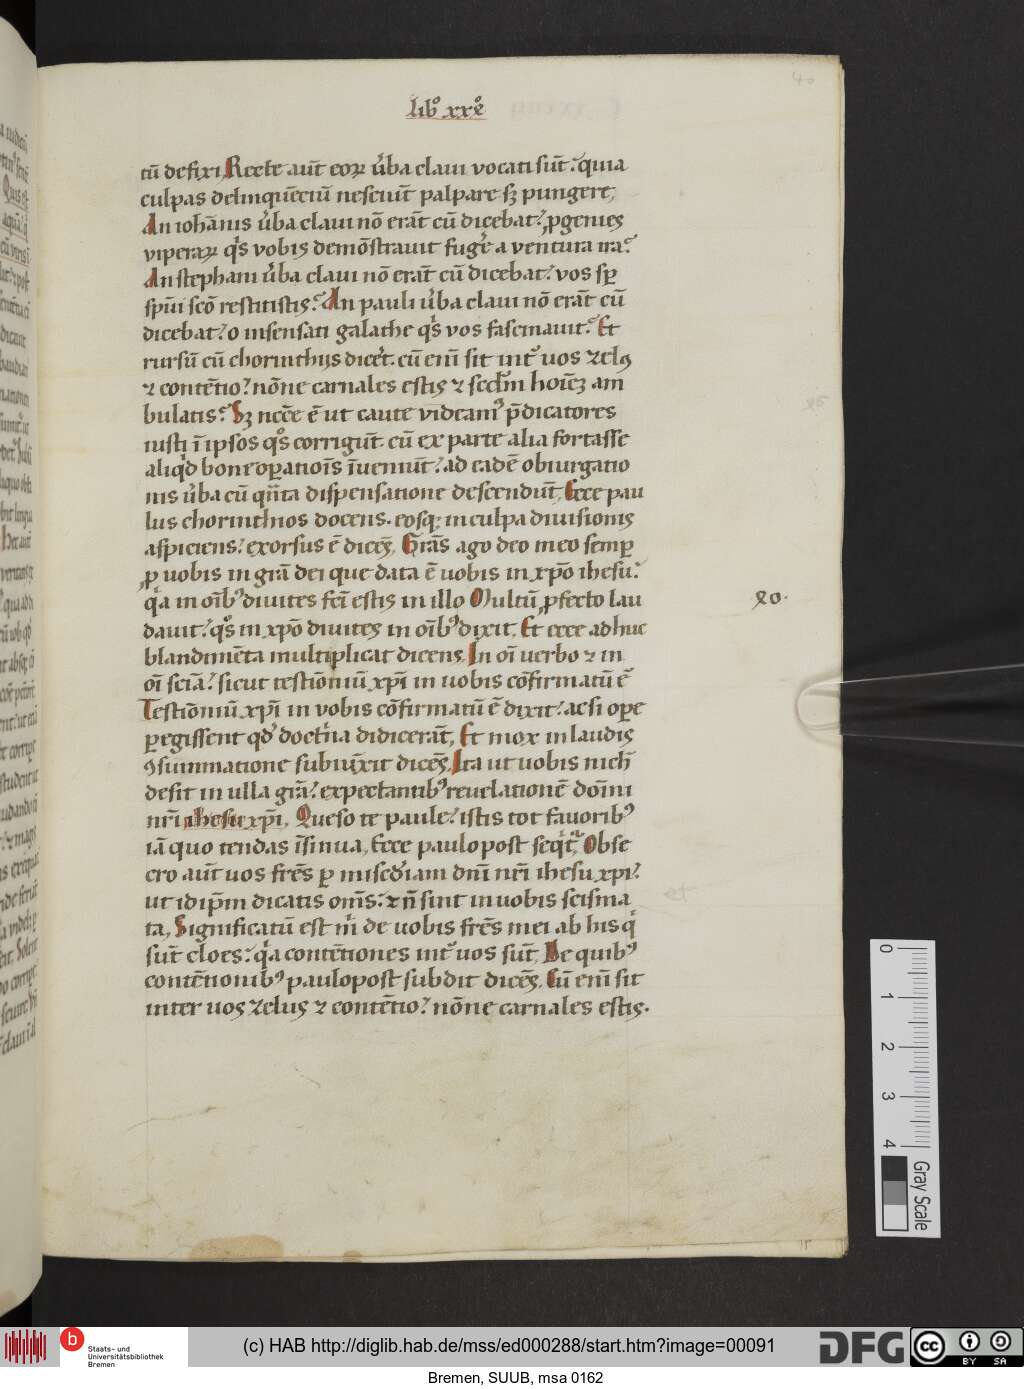 40
libº xxxº
tū defixi Recte aūt eoꝝ ỽba claui vocati sūt. quia
culpas delinquēciū nesciūt palpare sꝫ pungere;
An iohānis ỽba claui nō erāt cū dicebat? ꝓgenies
viperaꝝ qͥs vobis demōstrauit fugͤe a ventura ira?
An stephani ỽba claui nō erāt cū dicebat? vos sꝑ
spūi scō restitistis? An pauli ỽba claui nō erāt cū
dicebat? o insensati galathe qͥs vos fascinauit? Et
rursū cū chorinthijs dicēt. cū enī sit intͬ uos zelꝰ
⁊ contētio? nōne carnales estis ⁊ scdm hoīeꝫ am
bulatis? Sꝫ ncēe ē ut caute videamꝰ p̄dicatores
iusti ī ipsos qͦs corrigūt. cū ex parte alia fortasse
aliqͥd bone oꝑatiōis īueniūt? ad eadē obiurgatio
nis ỽba cū qͣnta dispensatione descendūt, Ecce pau
lus chorinthios docens. eosqꝫ in culpa diuisionis
aspiciens? exorsus ē dicēs, Grās ago deo meo semꝑ
ꝓ uobis in grā dei que data ē uobis in xp̄o ihesu?
qͥa in oībꝰ diuites fcī estis in illo Multū ꝓfecto lau
dauit? qͦs in xp̄o diuites in oībꝰ dixit. Et ecce adhuc
blandimēta multiplicat dicens, In oī uerbo ⁊ in
oī sciā? sicut testiōniū xp̄i in uobis cōfirmatū ē
Testiōniū xp̄i in vobis cōfirmatū ē dixit? ac si oꝑe
ꝑegissent qd̓ doctͥna didicerāt, Et mox in laudis
ꝯsummatione subiūxit dicēs, Ita ut uobis nich̄
desit in ulla grā? expectantibꝰ reuelationē dōmi
nr̄i ihesu xp̄i, Queso te paule? istis tot fauoribꝰ
iā quo tendas īsinua, Ecce paulo post seqͥtͬ, Obse
cro aūt uos fr̄es ꝑ misc̄diam dnī nr̄i ihesu xpi?
ut idip̄m dicatis om̄s? ⁊ n̄ sint in uobis scisma
ta, Significatū est m̄ de uobis fr̄es mei ab his qͥ
sūt cloes? qͥa contētiones intͬ uos sūt, De quibꝰ
contētionibꝰ paulopost subdit dicēs, Cū enī sit
inter uos zelus ⁊ contētio? nōne carnales estis.
xo.
0
1
2
3
4
Gray Scale
b
Staats- und
Universitätsbibliothek
Bremen
(c) HAB http://diglib.hab.de/mss/ed000288/start.htm?image=00091
DFG
cc
BY SA
Bremen, SUUB, msa 0162